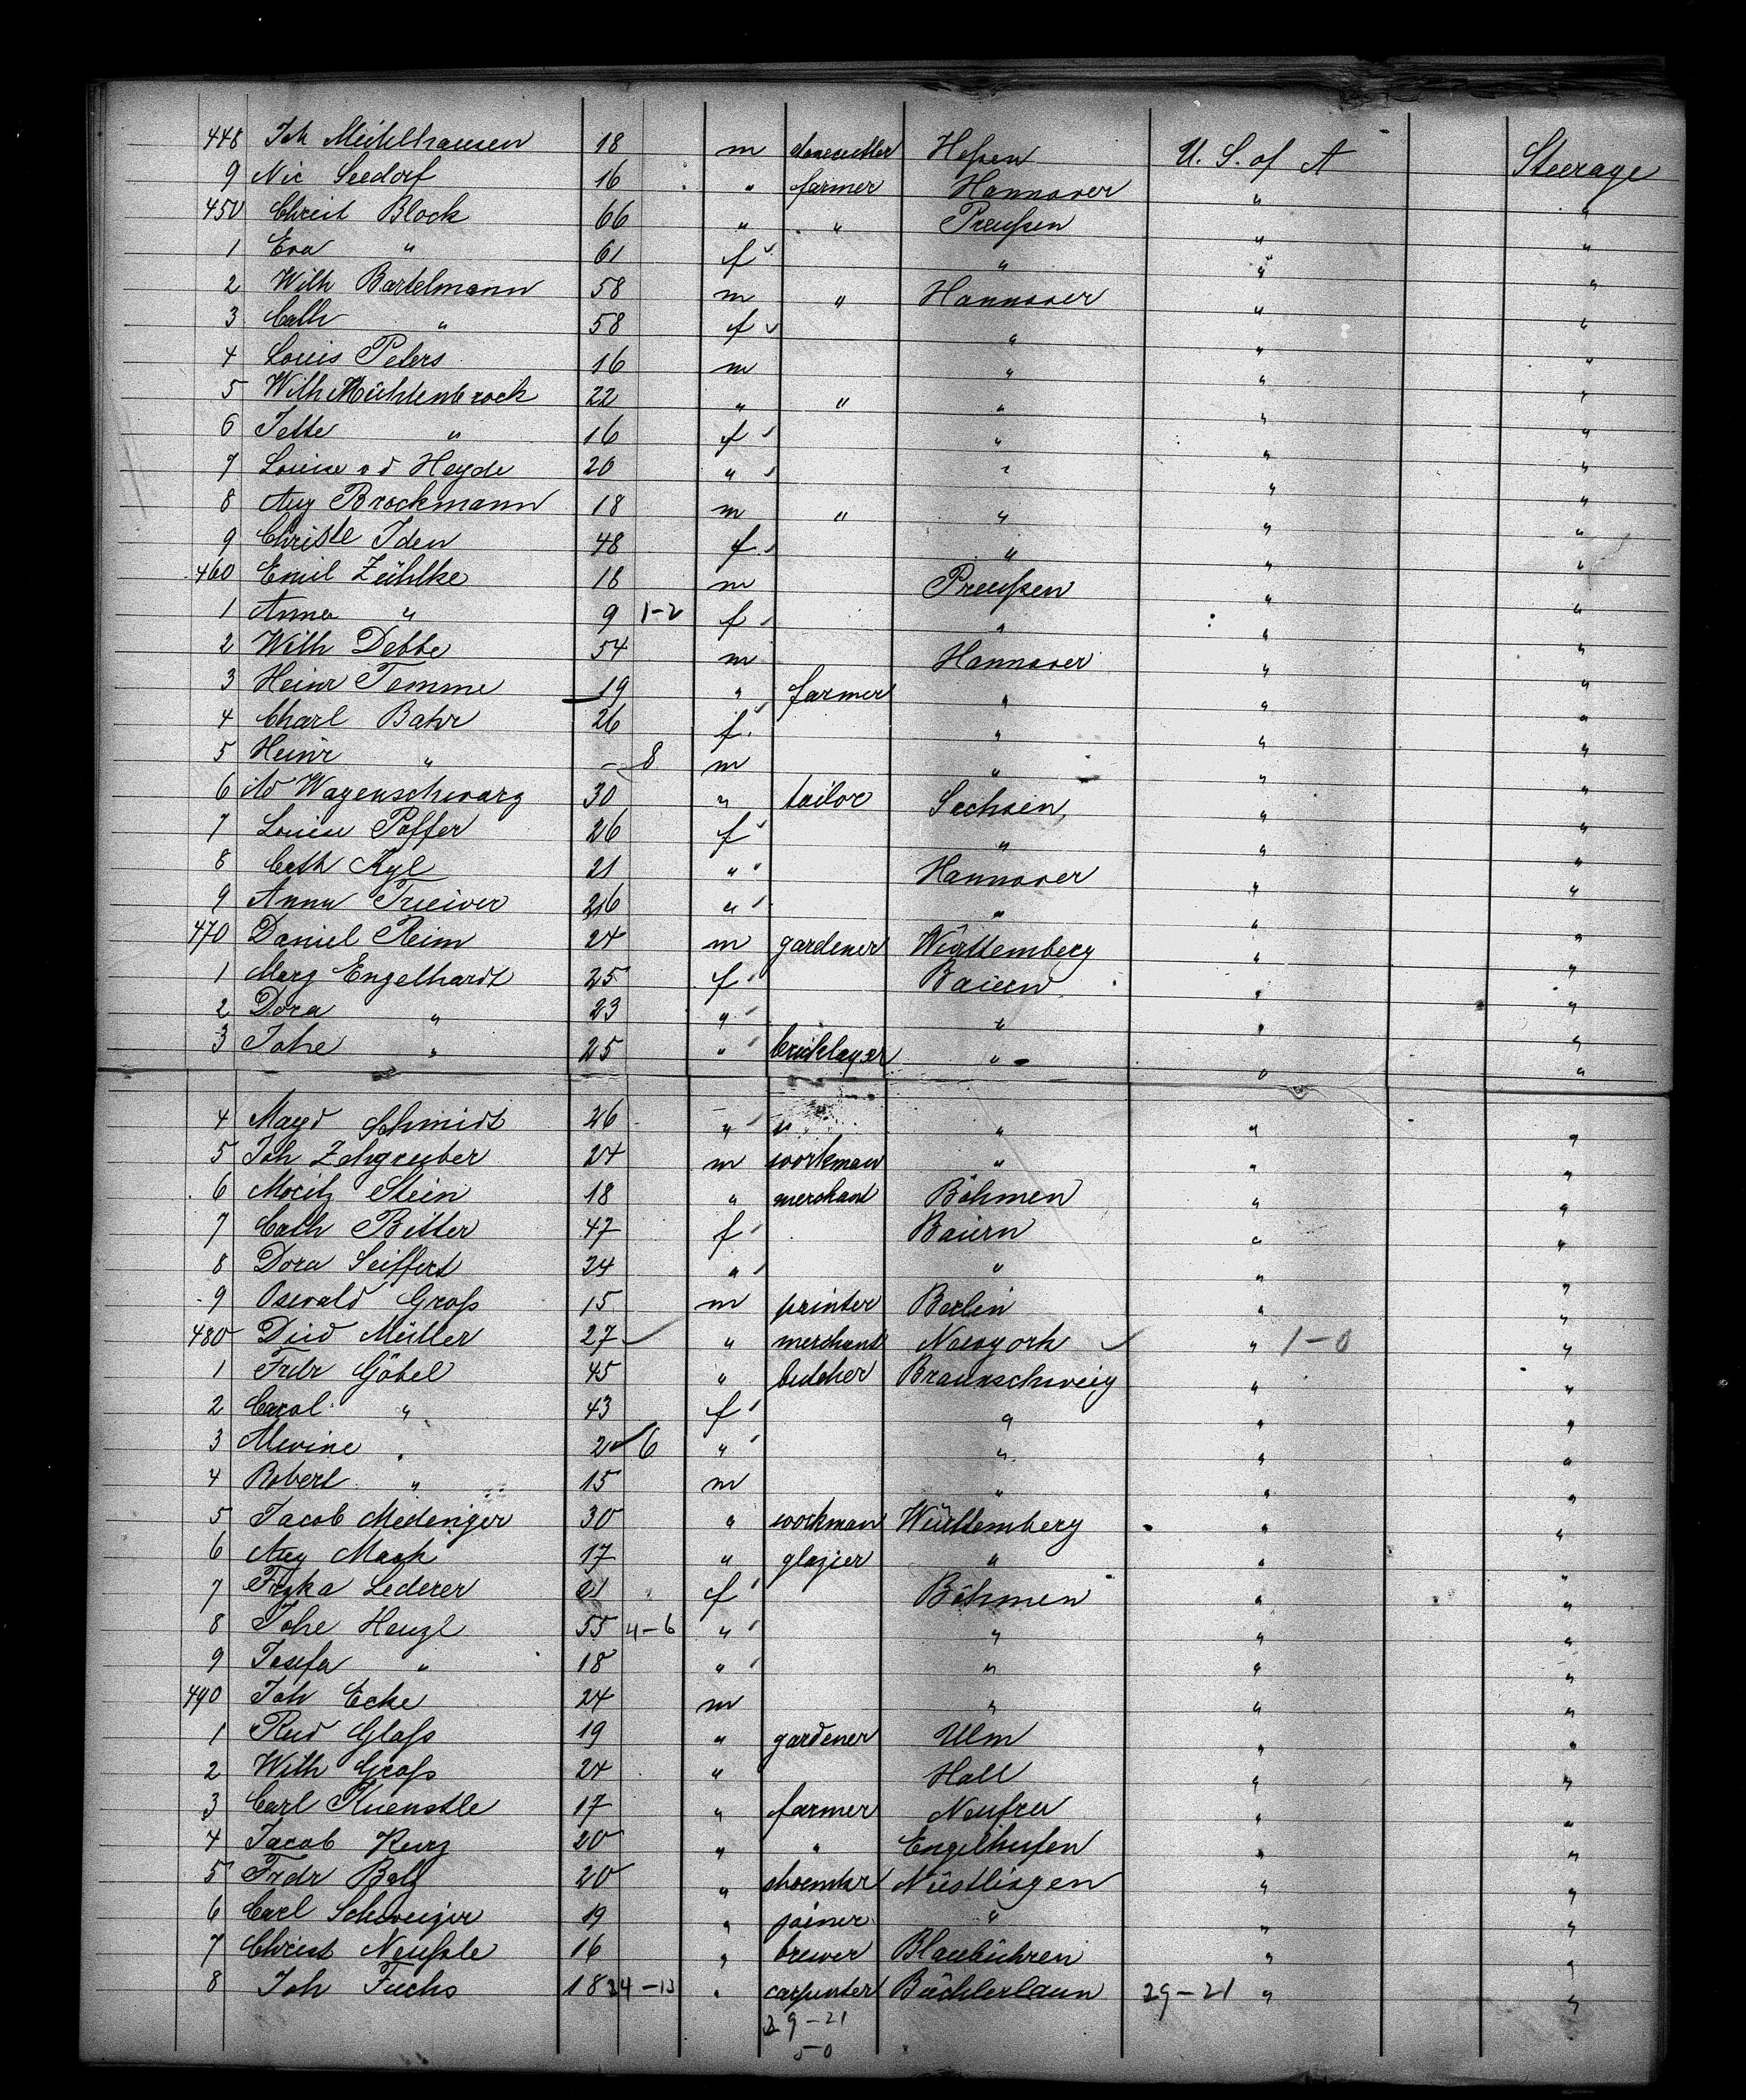 448 Joh Mühlhausen 18 m Heßen U. S. of A Steerage
9 Nic Seedorf 16 " farmer Hannover " "
450 Christ Block 66 " " Preußen " "
1 Eva " 61 f " " "
2 Wilh Bartelmann 58 m " Hannover " "
3 Cath " 58 f " " "
4 Louis Peters 16 m " " "
5 Wilh Mühlenbrock 22 " " " " "
6 Jette " 16 f " " "
7 Louise v d Heyde 20 " " " "
8 Aug Brockmann 18 m " " " "
9 Christe Iden 48 f " " "
460 Emil Zühlke 18 m Preußen " "
1 Anna " 9 1-2 f " " "
2 Wilh Debbe 54 m Hannover " "
3 Heinr Temme 19 " farmer " " "
4 Charl Bahr 26 f " " "
5 Heinr " - 8 m " " "
6 Ad Wagenschwarz 30 " tailor Sachsen " "
7 Louise Poffer 26 f " " "
8 Cath Kyl 21 " Hannover " "
9 Anna 26 " " " "
470 Daniel Reim 24 m gardener Württemberg " "
1 Marg Engelhardt 25 f Baiern " "
2 Dora " 23 " " " "
3 Johe " 25 " bricklayer " " "
4 Magd Schmidt 26 " " " " "
5 Joh Zehgruber 24 m workman " " "
6 Moritz Stein 18 " merchant Böhmen " "
7 Cath Bitter 47 f Baiern " "
8 Dora Seiffert 24 " " " "
9 Oswald Groß 15 m printer Berlin " "
480 Died Müller 27 " merchant Newyork " 1-0 "
1 Frdr Göbel 45 " butcher Braunschweig " "
2 Carol " 43 f " " "
3 Alwine " 20 6 " " " "
4 Robert " 15 m " " "
5 Jacob Medinger 30 " workman Württemberg " "
6 Aug Mack 17 " glazier " " "
7 Frzka Lederer 21 f Böhmen " "
8 Johe Henzl 55 4-6 " " " "
9 Josefa " 18 " " " "
490 Joh Ecke 24 m " " "
1 Rud Glaß 19 " gardener Ulm " "
2 Wilh Groß 24 " Hall " "
3 Carl Kuenstle 17 " farmer Neufra " "
4 Jacob Kurz 20 " " Engelhofen " "
5 Frdr Bolz 20 " shoemkr " "
6 Carl Schweizer 19 " joiner " " "
7 Christ Neußle 16 " brewer Blaubühren " "
8 Joh Fuchs 18 24-13 " carpenter 29-21 " "
29-21
5-0